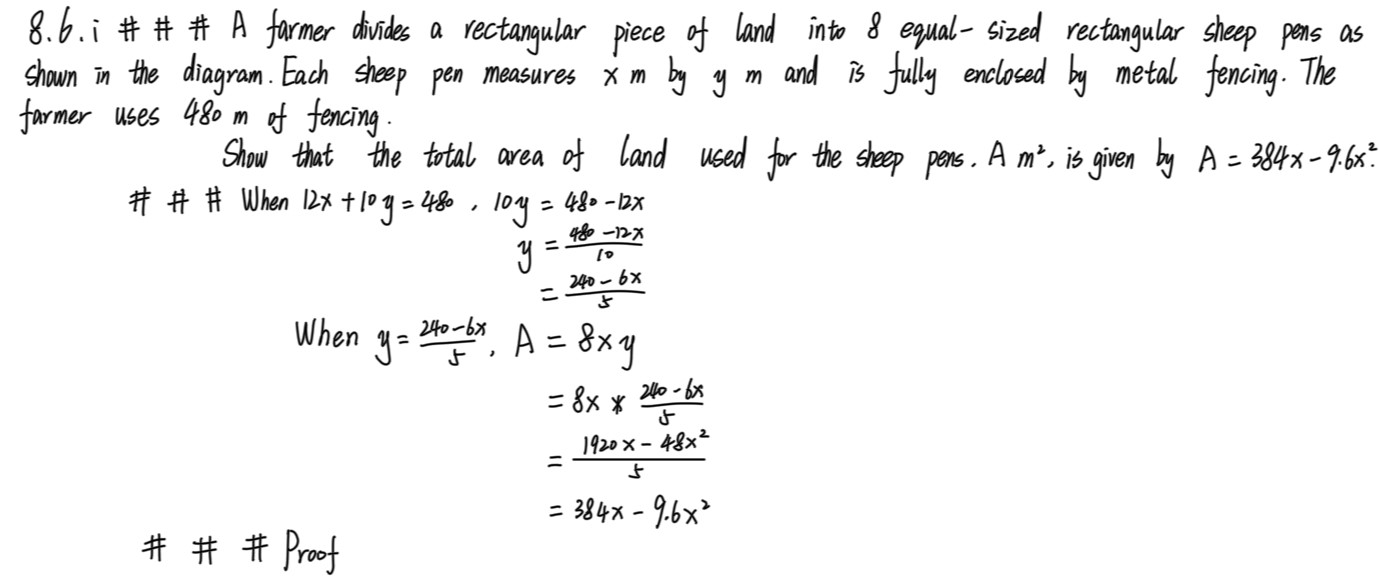 8.6.i # # # A farmer divides a rectangular piece of land into 8 equal-sized rectangular sheep pens as
shown in the diagram. Each sheep pen measures x m by y m and is fully enclosed by metal fencing. The
farmer uses 480 m of fencing.
Show that the total area of land used for the sheep pens. A m², is given by A = 384x - 9.6x².
# # # When 12x + 10y = 480 , 10y = 480 - 12x
y = \frac{480 - 12x}{10}
= \frac{240 - 6x}{5}
When y = \frac{240 - 6x}{5}, A = 8xy
= 8x * \frac{240 - 6x}{5}
= \frac{1920x - 48x²}{5}
= 384x - 9.6x²
# # # Proof